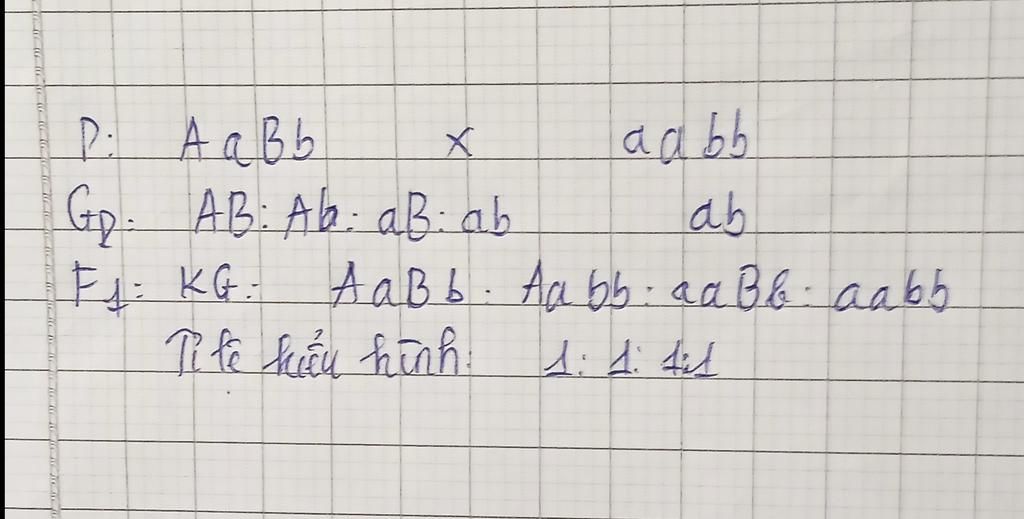 P: AaBb x aabb
GP: AB: Ab: aB: ab ab
F1: KG: AaBb: Aabb: aaBb: aabb
Tỉ lệ kiểu hình: 1: 1: 1:1